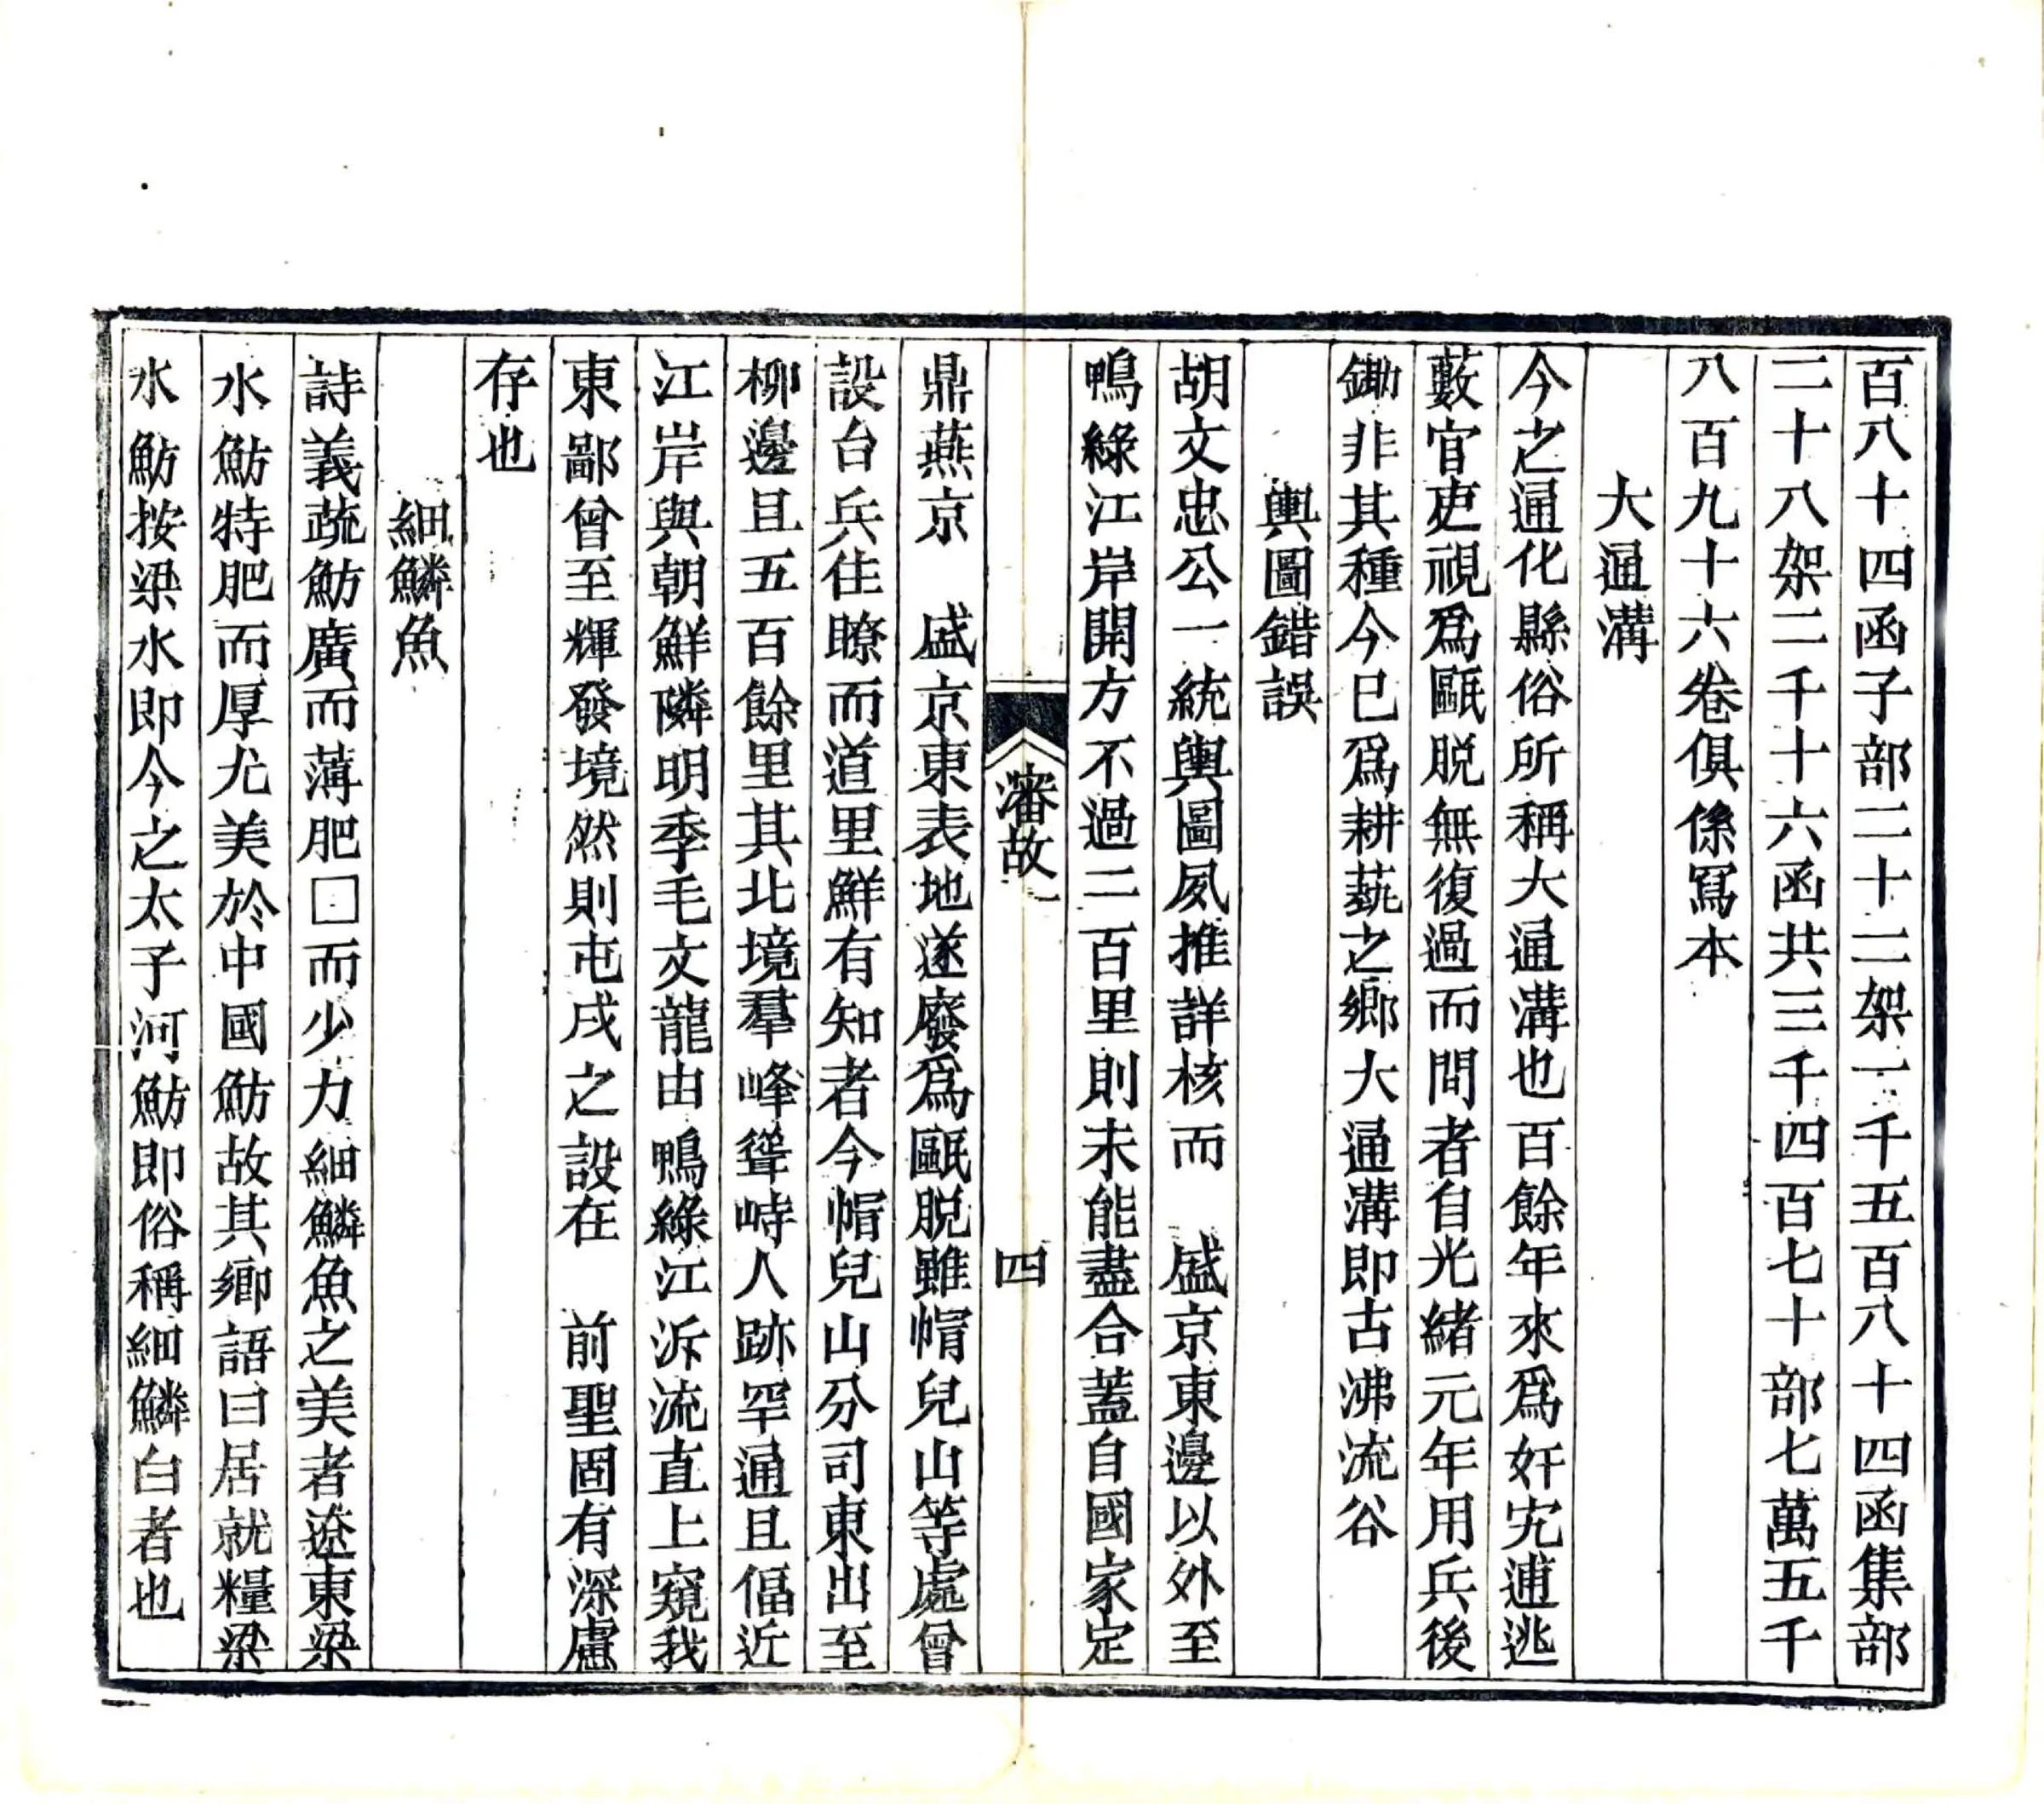 百八十四函子部二十二架一千五百八十四函集部
二十八架二千十六函共三千四百七十部七萬五千
八百九十六卷俱係寫本
大通溝
今之通化縣俗所稱大通溝也百餘年來爲奸宄逋逃
藪官吏視爲甌脫無復過而問者自光緒元年用兵後
鋤非其種今已爲耕蓺之鄉大通溝即古沸流谷
輿圖錯誤
胡文忠公一統輿圖夙推詳核而　盛京東邊以外至
鴨綠江岸開方不過二百里則未能盡合蓋自國家定
瀋故一
四
鼎燕京　盛京東表地遂廢爲甌脫雖帽兒山等處曾
設台兵住瞭而道里鮮有知者今帽兒山分司東出至
柳邊且五百餘里其北境羣峰聳峙人跡罕通且偪近
江岸與朝鮮隣明季毛文龍由鴨綠江泝流直上窺我
東鄙曾至輝發境然則屯戍之設在　前聖固有深慮
存也
細鱗魚
詩義蔬魴廣而薄肥□而少力細鱗魚之美者遼東梁
水魴特肥而厚尤美於中國魴故其鄉語曰居就糧梁
水魴按梁水即今之太子河魴即俗稱細鱗白者也